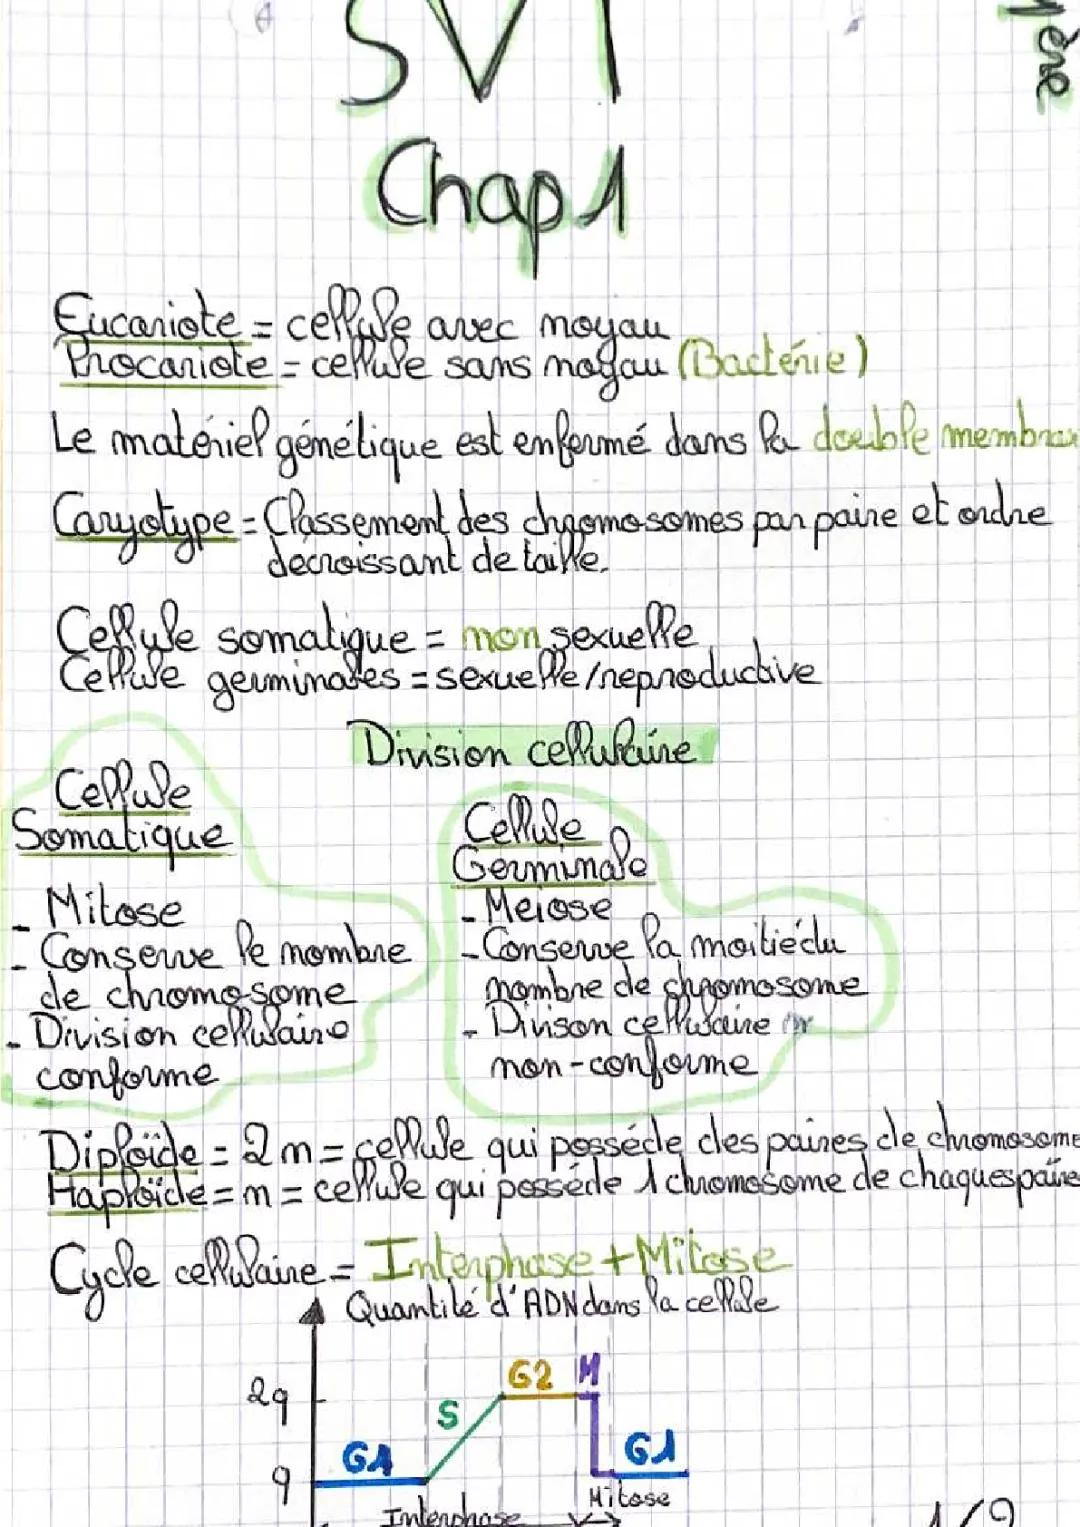 SVT
ère
Chap 1
Eucariote = cellule avec noyau
Procariote = cellule sans noyau (Bactérie)
Le matériel génétique est enfermé dans la double membran
Caryotype = Classement des chromosomes par paire et ordre
decroissant de taille.
Cellule somatique = non sexuelle
Cellule germinales = sexuelle/reproductive
Division cellulaire
Cellule
Somatique
- Mitose
- Conserve le nombre
de chromosome
- Division cellulaire
conforme
Cellule
Germinale
- Meiose
- Conserve la moitié du
nombre de chromosome
- Divison cellulaire
non-conforme
Diploïde = 2n = cellule qui posséde des paires de chromosome
Haploïde = n = cellule qui posséde 1 chromosome de chaques paire
Cycle cellulaire = Interphase + Mitose
Quantité d'ADN dans la cellule
2q
q
G1
S
G2
M
G1
Interphase
Mitose
1/2